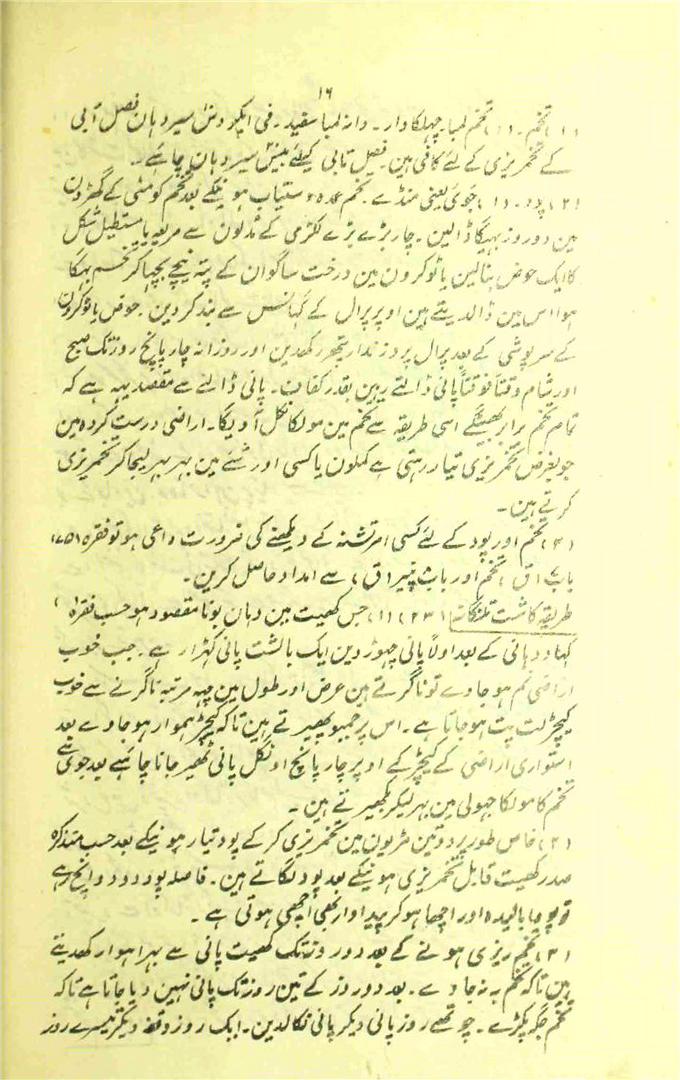 ۱۶
(۱) تخم۔ (۱) تخم لمبا۔ چھلکا دار۔ دانہ لمبا سفید۔ فی ایکڑ دس سیر دہان فصل آبی
کے تخمریزی کے لئے کافی ہین۔ فصل تابی کیلئے بیس سیر دہان چاہئے۔
(۲) پود۔ (۱) جوئی یعنی منڈے۔ تخم عمدہ دستیاب ہونیکے بعد تخم کو مٹی کے گھڑون
مین دو روز بہیگا ڈالین۔ چار بڑے بڑے لکڑمی کے مڈلون سے مربعہ یا مستطیل شکل
کا ایک حوض بنالین یا ٹوکرون مین درخت ساگوان کے پتہ نیچے بچہا کر تخم بہگا
ہوا اس مین ڈالدیتے ہین اوپر پرال کے گہانس سے بند کر دین۔ حوض یا ٹوکرون
کے سرپوشی کے بعد پرال پر وزندار پتھر رکھدین اور روزانہ چار پانچ روز تک صبح
اور شام وقتاً فوقتاً پانی ڈالتے رہین بقدر کفاف۔ پانی ڈالنے سے مقصد یہہ ہے کہ
تمام تخم برابر بھیگے اسی طریقہ سے تخم مین مولکا نکل آویگا۔ اراضی درست کردہ مین
جو بغرض تخمریزی تیار رہتی ہے کملون یا کسی اور شئے مین بہر بہر لیجا کر تخمریزی
کرتے ہین۔
(۳) تخم اور پود کے لئے کسی امر تشنہ کے دیکھنے کی ضرورت داعی ہو تو فقرہ (۷۵)
باب (ق) تخم اور باب پنیر (ق) سے امداد حاصل کرین۔
طریقہ کاشت تلنگانہ (۲۳) (۱) جس کھیت مین دہان بونا مقصود ہو حسب فقرہ ( )
کہاد دہانی کے بعد اولاً پانی چہوڑ دین ایک بالشت پانی کہڑا رہے۔ جب خوب
اراضی نم ہو جاوے تو ناگرتے ہین عرض اور طول مین چہہ مرتبہ ناگرنے سے خوب
کیچڑ لت پت ہو جاتا ہے۔ اس پر جمبو پھیرتے ہین تاکہ کیچڑ ہموار ہو جاوے بعد
استواری اراضی کے کیچڑ کے اوپر چار پانچ اونگل پانی ٹھیر جانا چاہئیے بعد جوی شے
تخم کا مولکا جہولی مین بہر لیکر بکھیرتے ہین۔
(۲) خاص طور پر دو تین مڑیون مین تخمریزی کر کے پود تیار ہونیکے بعد حسب متذکرہ
صدر کھیت قابل تخمریزی ہونیکے بعد پود لگاتے ہین۔ فاصلہ پود دو دو انچ رہے
تو پودا بالیدہ اور اچھا ہو کر پیداوار بھی اچھی ہوتی ہے۔
(۳) تخم ریزی ہونے کے بعد دو روز تک کھیت پانی سے بہرا ہوا رکھدیتے
ہین تاکہ تخم بہ نہ جاوے۔ بعد دو روز کے تین روز تک پانی نہین دیا جاتا ہے تاکہ
تخم جگہ پکڑے۔ چوتھے روز پانی دیکر پانی نکالدین۔ ایک روز وقفہ دیکر تیسرے روز